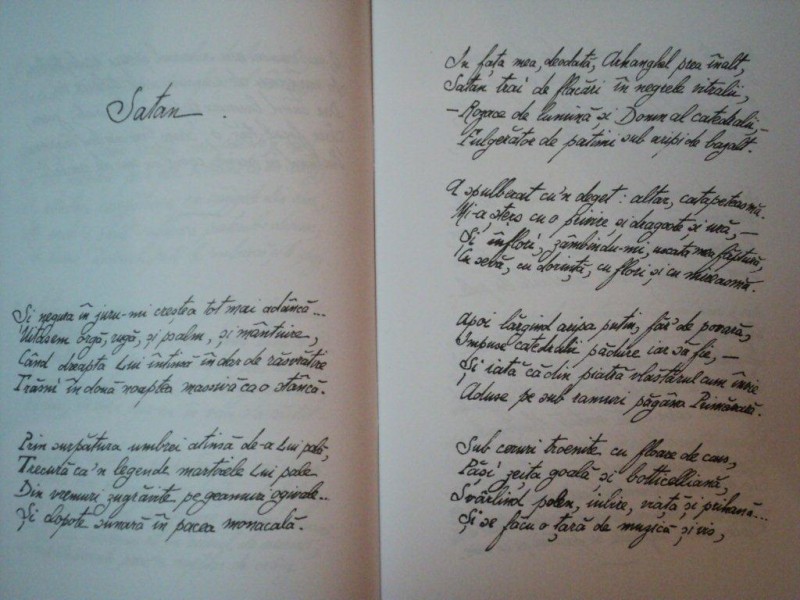 Satan.
Și negura în juru-mi creștea tot mai adâncă...
Uitasem orgă, rugă, și psalm, și mântuire,
Când dreapta Lui întinsă în dar de răsvrătire
Trăsni în două noaptea massivă ca o stâncă.
Prin surpătura umbrei atinsă de-a Lui pală,
Trecură ca'n legende martorele Lui pale
Din vremuri zugrăvite pe geamuri ogivale...
Și clopote sunară în pacea monacală.
In fața mea, deodată, Arhanghel prea înalt,
Satan trăi de flăcări în negrele vitralii,
– Rozace de lumină și Domn al catedralii, –
Fulgerător de patimi sub aripi de bazalt.
A spulberat cu'n deget: altar, catapeteasmă.
Mi-a șters cu o privire și dragoste și ură, –
Și înflori, zâmbindu-mi, uscata mea făptură,
Cu sevă, cu dorință, cu flori și cu mireasmă.
Apoi lărgind aripa puțin, făr' de povară,
Impuse catedralii pădure iar să fie, –
Și iată că din piatră vlăstarul cum învie
Aduse pe sub ramuri păgâna Primăvară.
Sub ceruri troenite cu floare de cais,
Păși zeița goală și botticelliană,
Svârlind polen, iubire, viață și prihană...
Și se făcu o țară de muzică și vis,